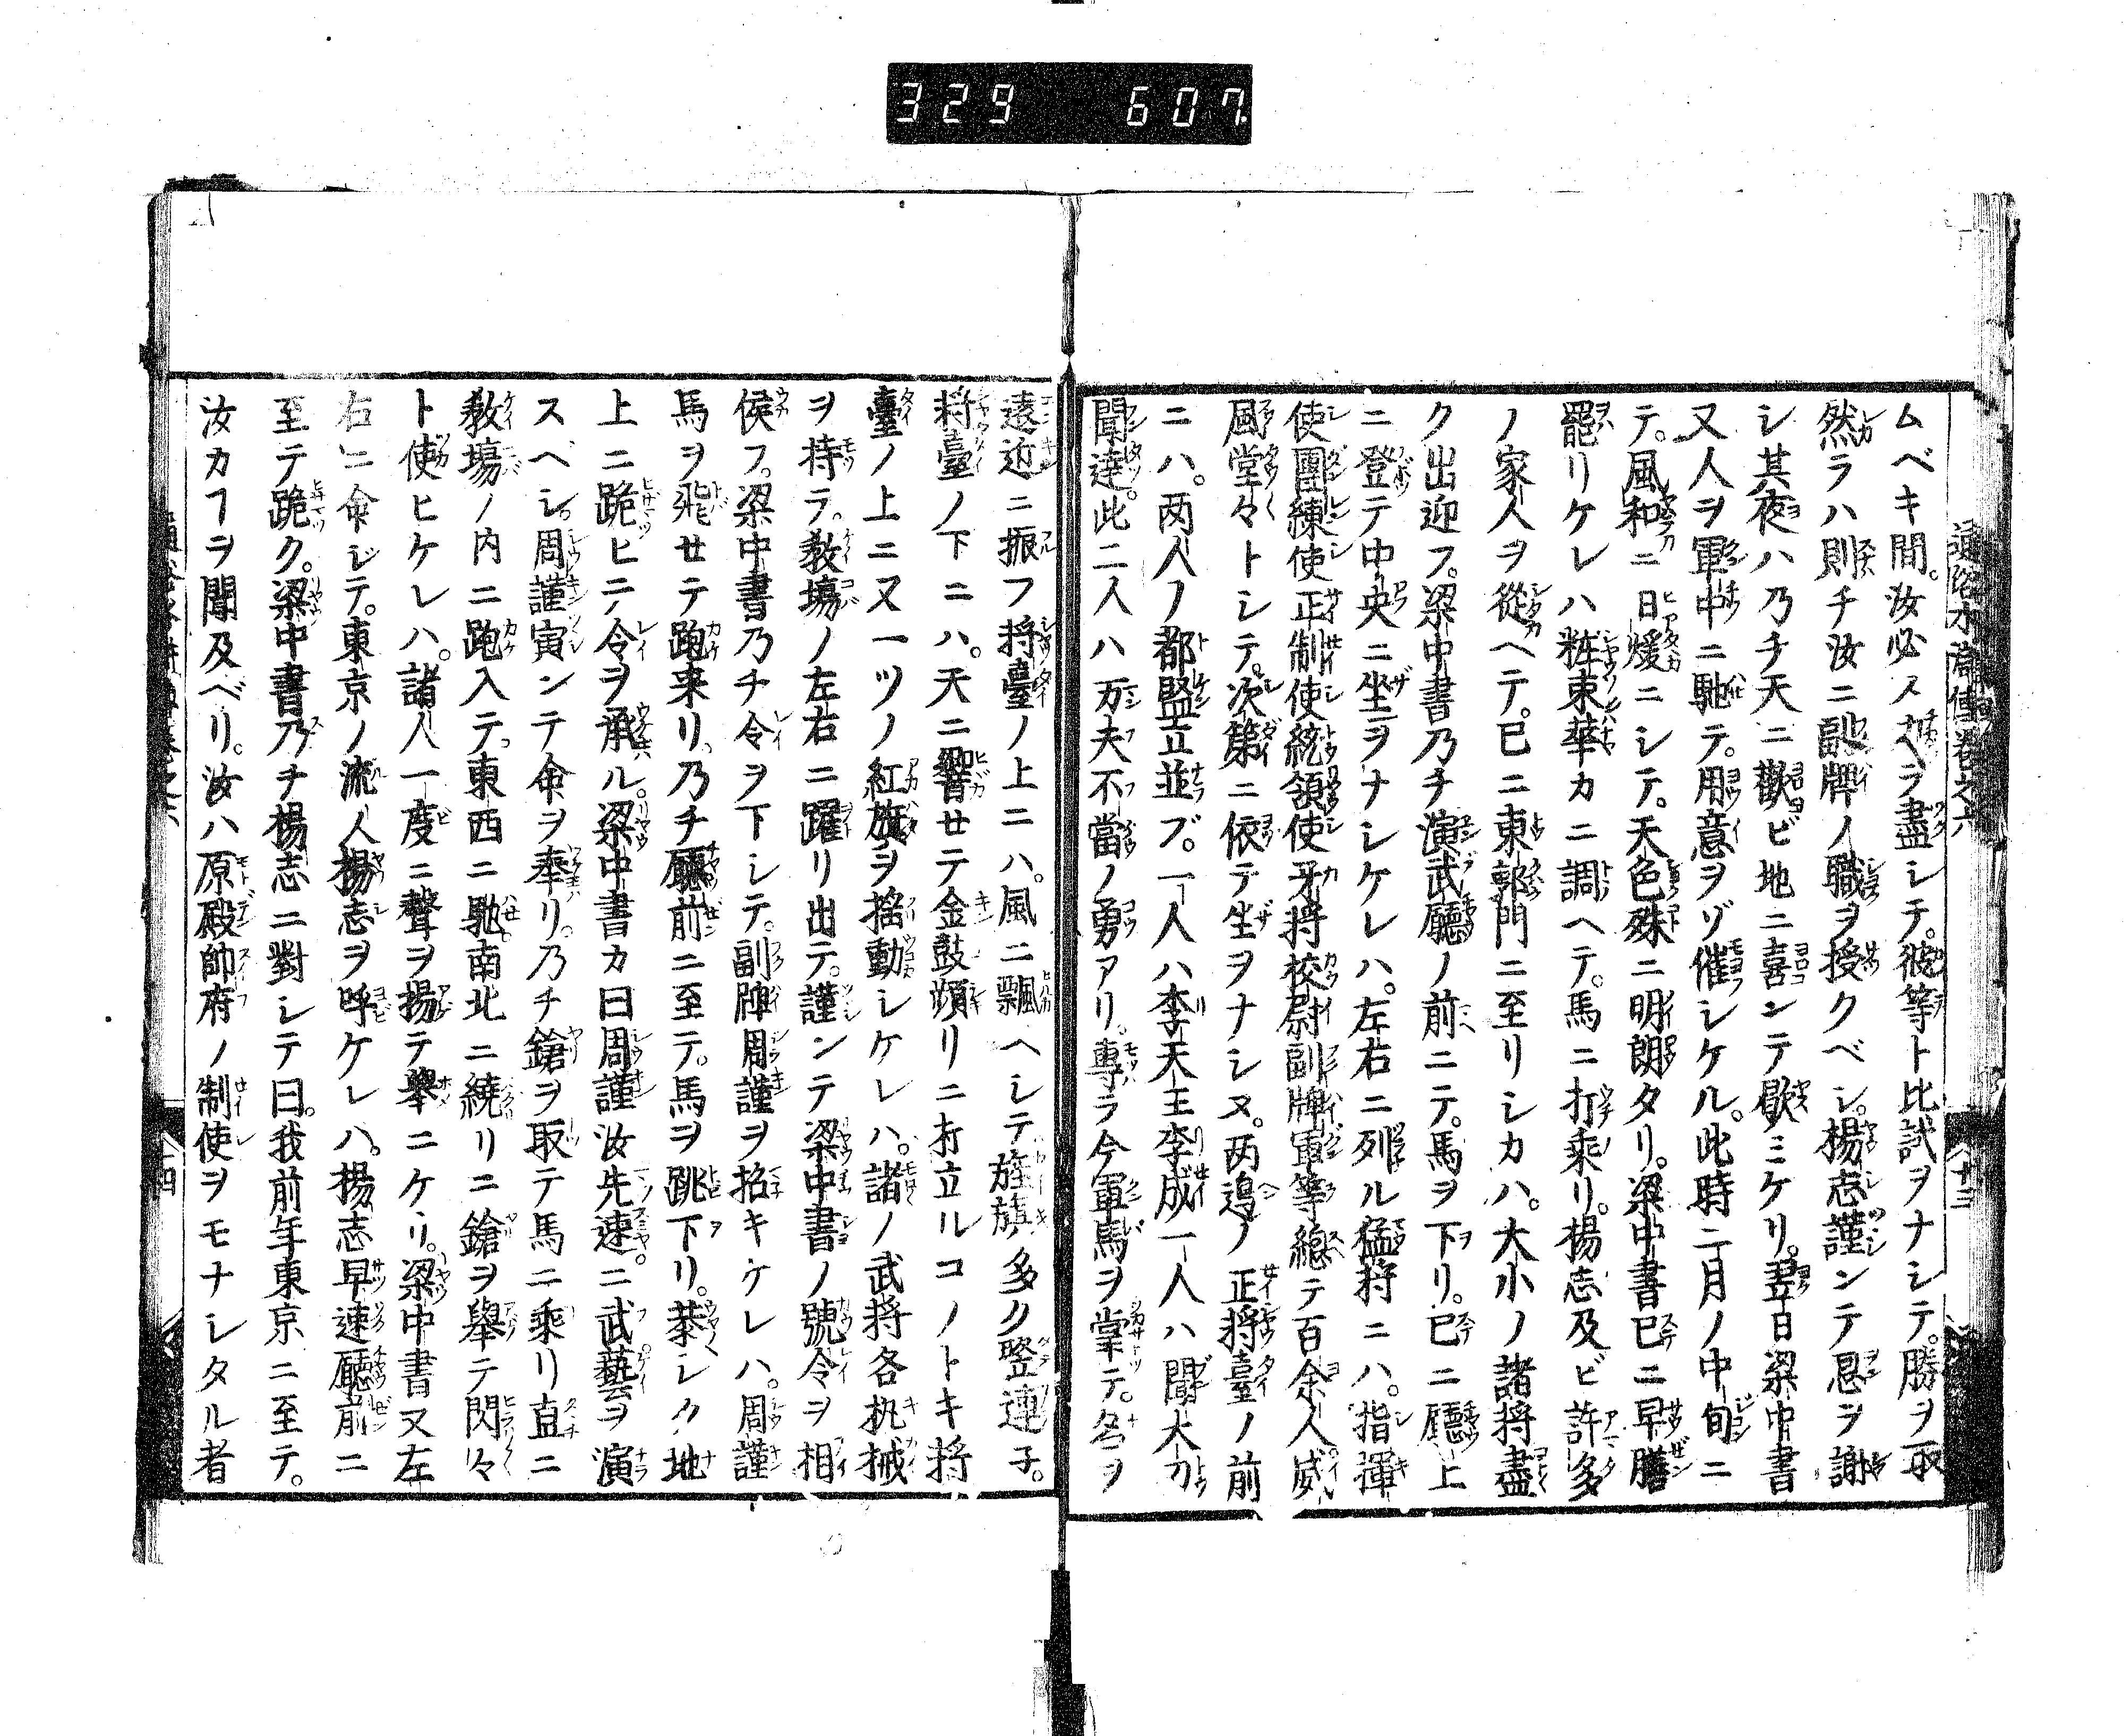 329 607
通俗水滸傳卷之六
十三
ムベキ間。汝必ス力ヲ盡シテ。彼等ト比試ヲナシテ。勝ヲ取
然ラハ則チ汝ニ副牌ノ職ヲ授クベシ。楊志謹ンテ恩ヲ謝
シ其夜ハ乃チ天ニ歡ビ地ニ喜ンテ歇ミケリ。翌日梁中書
又人ヲ軍中ニ馳テ。用意ヲゾ催シケル。此時二月ノ中旬ニ
テ。風和ニ日煖ニシテ。天色殊ニ明朗タリ。梁中書已ニ早膳
罷リケレハ粧束華カニ調ヘテ。馬ニ打乘リ。楊志及ビ許多
ノ家人ヲ從ヘテ。已ニ東郭門ニ至リシカハ。大小ノ諸將盡
ク出迎フ。梁中書乃チ演武廳ノ前ニテ。馬ヲ下リ。已ニ廳上
ニ登テ中央ニ坐ヲナシケレハ。左右ニ列ル猛將ニハ。指揮
使團練使正制使統領使牙將校尉副牌軍等總テ百余人威
風堂々トシテ。次第ニ依テ坐ヲナシヌ。两邉ノ正將臺ノ前
ニハ。两人ノ都監立並ブ。一人ハ李天王李成一人ハ聞大刀
聞達。此二人ハ万夫不當ノ勇アリ。專ラ今軍馬ヲ掌テ。名ヲ
遠近ニ振フ將臺ノ上ニハ。風ニ飄ヘシテ旌旗多ク竪連子。
將臺ノ下ニハ。天ニ響セテ金鼓頻リニ打立ルコノトキ將
臺ノ上ニ又一ツノ紅旗ヲ搖動シケレハ。諸ノ武將各执械
ヲ持テ。敎塲ノ左右ニ躍リ出テ。謹ンテ梁中書ノ號令ヲ相
候フ。梁中書乃チ令ヲ下シテ。副牌周謹ヲ招キケレハ。周謹
馬ヲ飛セテ跑来リ。乃チ廳前ニ至テ。馬ヲ跳下リ。恭シク地
上ニ跪ヒテ令ヲ承ル。梁中書カ曰周謹汝先速ニ武藝ヲ演
スヘシ。周謹寅ンテ命ヲ奉リ。乃チ鎗ヲ取テ馬ニ乘リ直ニ
敎塲ノ内ニ跑入テ。東西ニ馳南北ニ繞リニ鎗ヲ擧テ閃々
ト使ヒケレハ。諸人一度ニ聲ヲ揚テ擧ニケリ。梁中書又左
右ニ命シテ。東京ノ流人楊志ヲ呼ケレハ。楊志早速廳前ニ
至テ跪ク。梁中書乃チ楊志ニ對シテ曰。我前年東京ニ至テ。
汝カフヲ聞及ベリ。汝ハ原殿帥府ノ制使ヲモナシタル者
十四